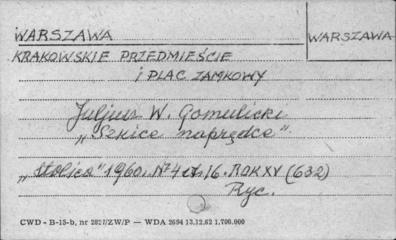 WARSZAWA
WARSZAWA
KRAKOWSKIE PRZEDMIEŚCIE
I PLAC ZAMKOWY
Juljusz W. Gomulicki
„Szkice naprędce".
„Stolica" 1960. Nr 4 16. ROK XV (632)
Ryc.
CWD - B-15-b, nr 2827/ZW/P — WDA 2694 13.12.62 1.700.000